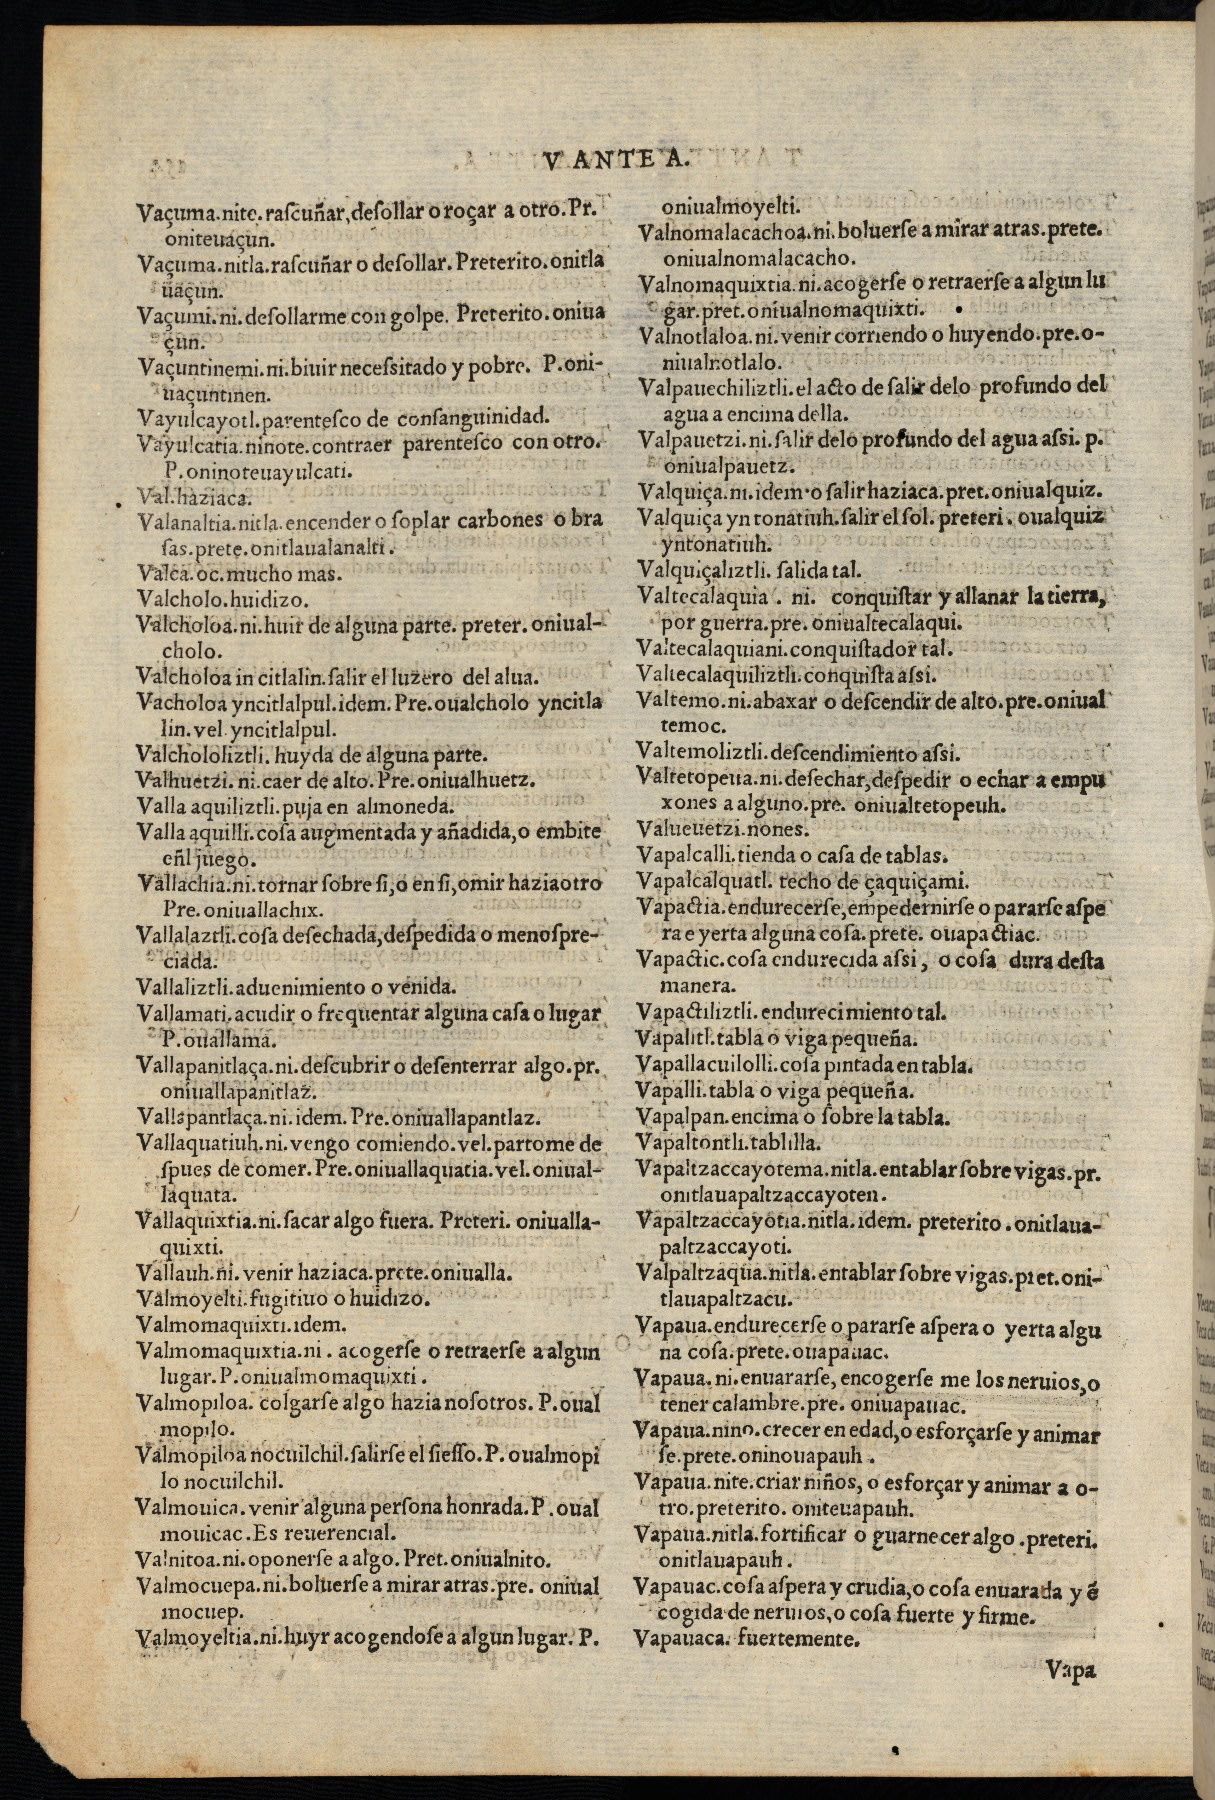 V ANTE A.
Vaçuma.nite.rascuñar,desollar o roçar a otro.Pr.
oniteuaçun.
Vaçuma.nitla.rascuñar o desollar. Preterito.onitla
uaçun.
Vaçumi.ni.desollarme con golpe. Preterito.oniua
çun.
Vaçuntinemi.ni.biuir necessitado y pobre. P.oni-
uaçuntinen.
Vayulcayotl.parentesco de consanguinidad.
Vayulcatia.ninote.contraer parentesco con otro.
P.oninoteuayulcati.
Val.haziaca.
Valanaltia.nitla.encender o soplar carbones o bra
sas.prete.onitlaualanalti.
Valca.oc.mucho mas.
Valcholo.huidizo.
Valcholoa.ni.huir de alguna parte. preter. oniual-
cholo.
Valcholoa in citlalin.salir el luzero del alua.
Vacholoa yncitlalpul.idem.Pre.oualcholo yncitla
lin.vel yncitlalpul.
Valchololiztli. huyda de alguna parte.
Valhuetzi.ni.caer de alto.Pre.oniualhuetz.
Valla aquiliztli.puja en almoneda.
Valla aquilli.cosa augmentada y añadida,o embite
eñl juego.
Vallachia.ni.tornar sobre si,o en si,o mir hazia otro
Pre.oniuallachix.
Vallalaztli.cosa desechada,despedida o menospre-
ciada.
Vallaliztli.aduenimiento o venida.
Vallamati.acudir o frequentar alguna casa o lugar
P.ouallama.
Vallapanitlaça.ni.descubrir o desenterrar algo.pr.
oniuallapanitlaz.
Vallapantlaça.ni.idem.Pre.oniuallapantlaz.
Vallaquatiuh.ni.vengo comiendo.vel.partome de
spues de comer.Pre.oniuallaquatia.vel.oniual-
laquata.
Vallaquixtia.ni.sacar algo fuera. Preteri. oniualla-
quixti.
Vallauh.ni. venir haziaca.prete.oniualla.
Valmoyelti.fugitiuo o huidizo.
Valmomaquixti.idem.
Valmomaquixtia.ni. acogerse o retraerse a algun
lugar.P.oniualmomaquixti.
Valmopiloa. colgarse algo hazia nosotros. P.oual
mopilo.
Valmopiloa nocuilchil.salirse el siesso.P. oualmopi
lo nocuilchil.
Valmouica.venir alguna persona honrada.P.oual
mouicac.Es reuerencial.
Valnitoa.ni.oponerse a algo.Pret.oniualnito.
Valmocuepa.ni.boluerse a mirar atras.pre. oniual
mocuep.
Valmoyeltia.ni.huyr acogendose a algun lugar. P.
oniualmoyelti.
Valnomalacachoa.ni.boluerse a mirar atras.prete.
oniualnomalacacho.
Valnomaquixtia.ni.acogerse o retraerse a algun lu
gar.pret.oniualnomaquixti.
Valnotlaloa.ni.venir corriendo o huyendo.pre.o-
niualnotlalo.
Valpauechiliztli.el acto de salir delo profundo del
agua a encima della.
Valpauetzi.ni.salir delo profundo del agua assi. p.
oniualpauetz.
Valquiça.ni.idem.o salir haziaca.pret.oniualquiz.
Valquiça yn tonatiuh.salir el sol. preteri. oualquiz
yntonatiuh.
Valquiçaliztli. salida tal.
Valtecalaquia. ni. conquistar y allanar la tierra,
por guerra.pre. oniualtecalaqui.
Valtecalaquiani.conquistador tal.
Valtecalaquiliztli.conquista assi.
Valtemo.ni.abaxar o descendir de alto.pre.oniual
temoc.
Valtemoliztli.descendimiento assi.
Valtetopeua.ni.desechar,despedir o echar a empu
xones a alguno.pre. oniualtetopeuh.
Valueuetzi.nones.
Vapalcalli.tienda o casa de tablas.
Vapalcalquatl. techo de çaquiçami.
Vapactia.endurecerse,empedernirse o pararse aspe
ra e yerta alguna cosa.prete. ouapactiac.
Vapactic.cosa endurecida assi, o cosa dura desta
manera.
Vapactiliztli.endurecimiento tal.
Vapalitl.tabla o viga pequeña.
Vapallacuilolli.cosa pintada en tabla.
Vapalli.tabla o viga pequeña.
Vapalpan.encima o sobre la tabla.
Vapaltontli.tablilla.
Vapaltzaccayotema.nitla.entablar sobre vigas.pr.
onitlauapaltzaccayoten.
Vapaltzaccayotia.nitla.idem. preterito.onitlaua-
paltzaccayoti.
Valpaltzaqua.nitla.entablar sobre vigas.pret.oni-
tlauapaltzacu.
Vapaua.endurecerse o pararse aspera o yerta algu
na cosa.prete.ouapauac.
Vapaua.ni.enuararse, encogerse me los neruios,o
tener calambre.pre. oniuapauac.
Vapaua.nino.crecer en edad,o esforçarse y animar
se.prete.oninouapauh.
Vapaua.nite.criar niños, o esforçar y animar a o-
tro.preterito. oniteuapauh.
Vapaua.nitla.fortificar o guarnecer algo.preteri.
onitlauapauh.
Vapauac.cosa aspera y crudia,o cosa enuarada y ẽ
cogida de neruios,o cosa fuerte y firme.
Vapauaca. fuertemente.
Vapa